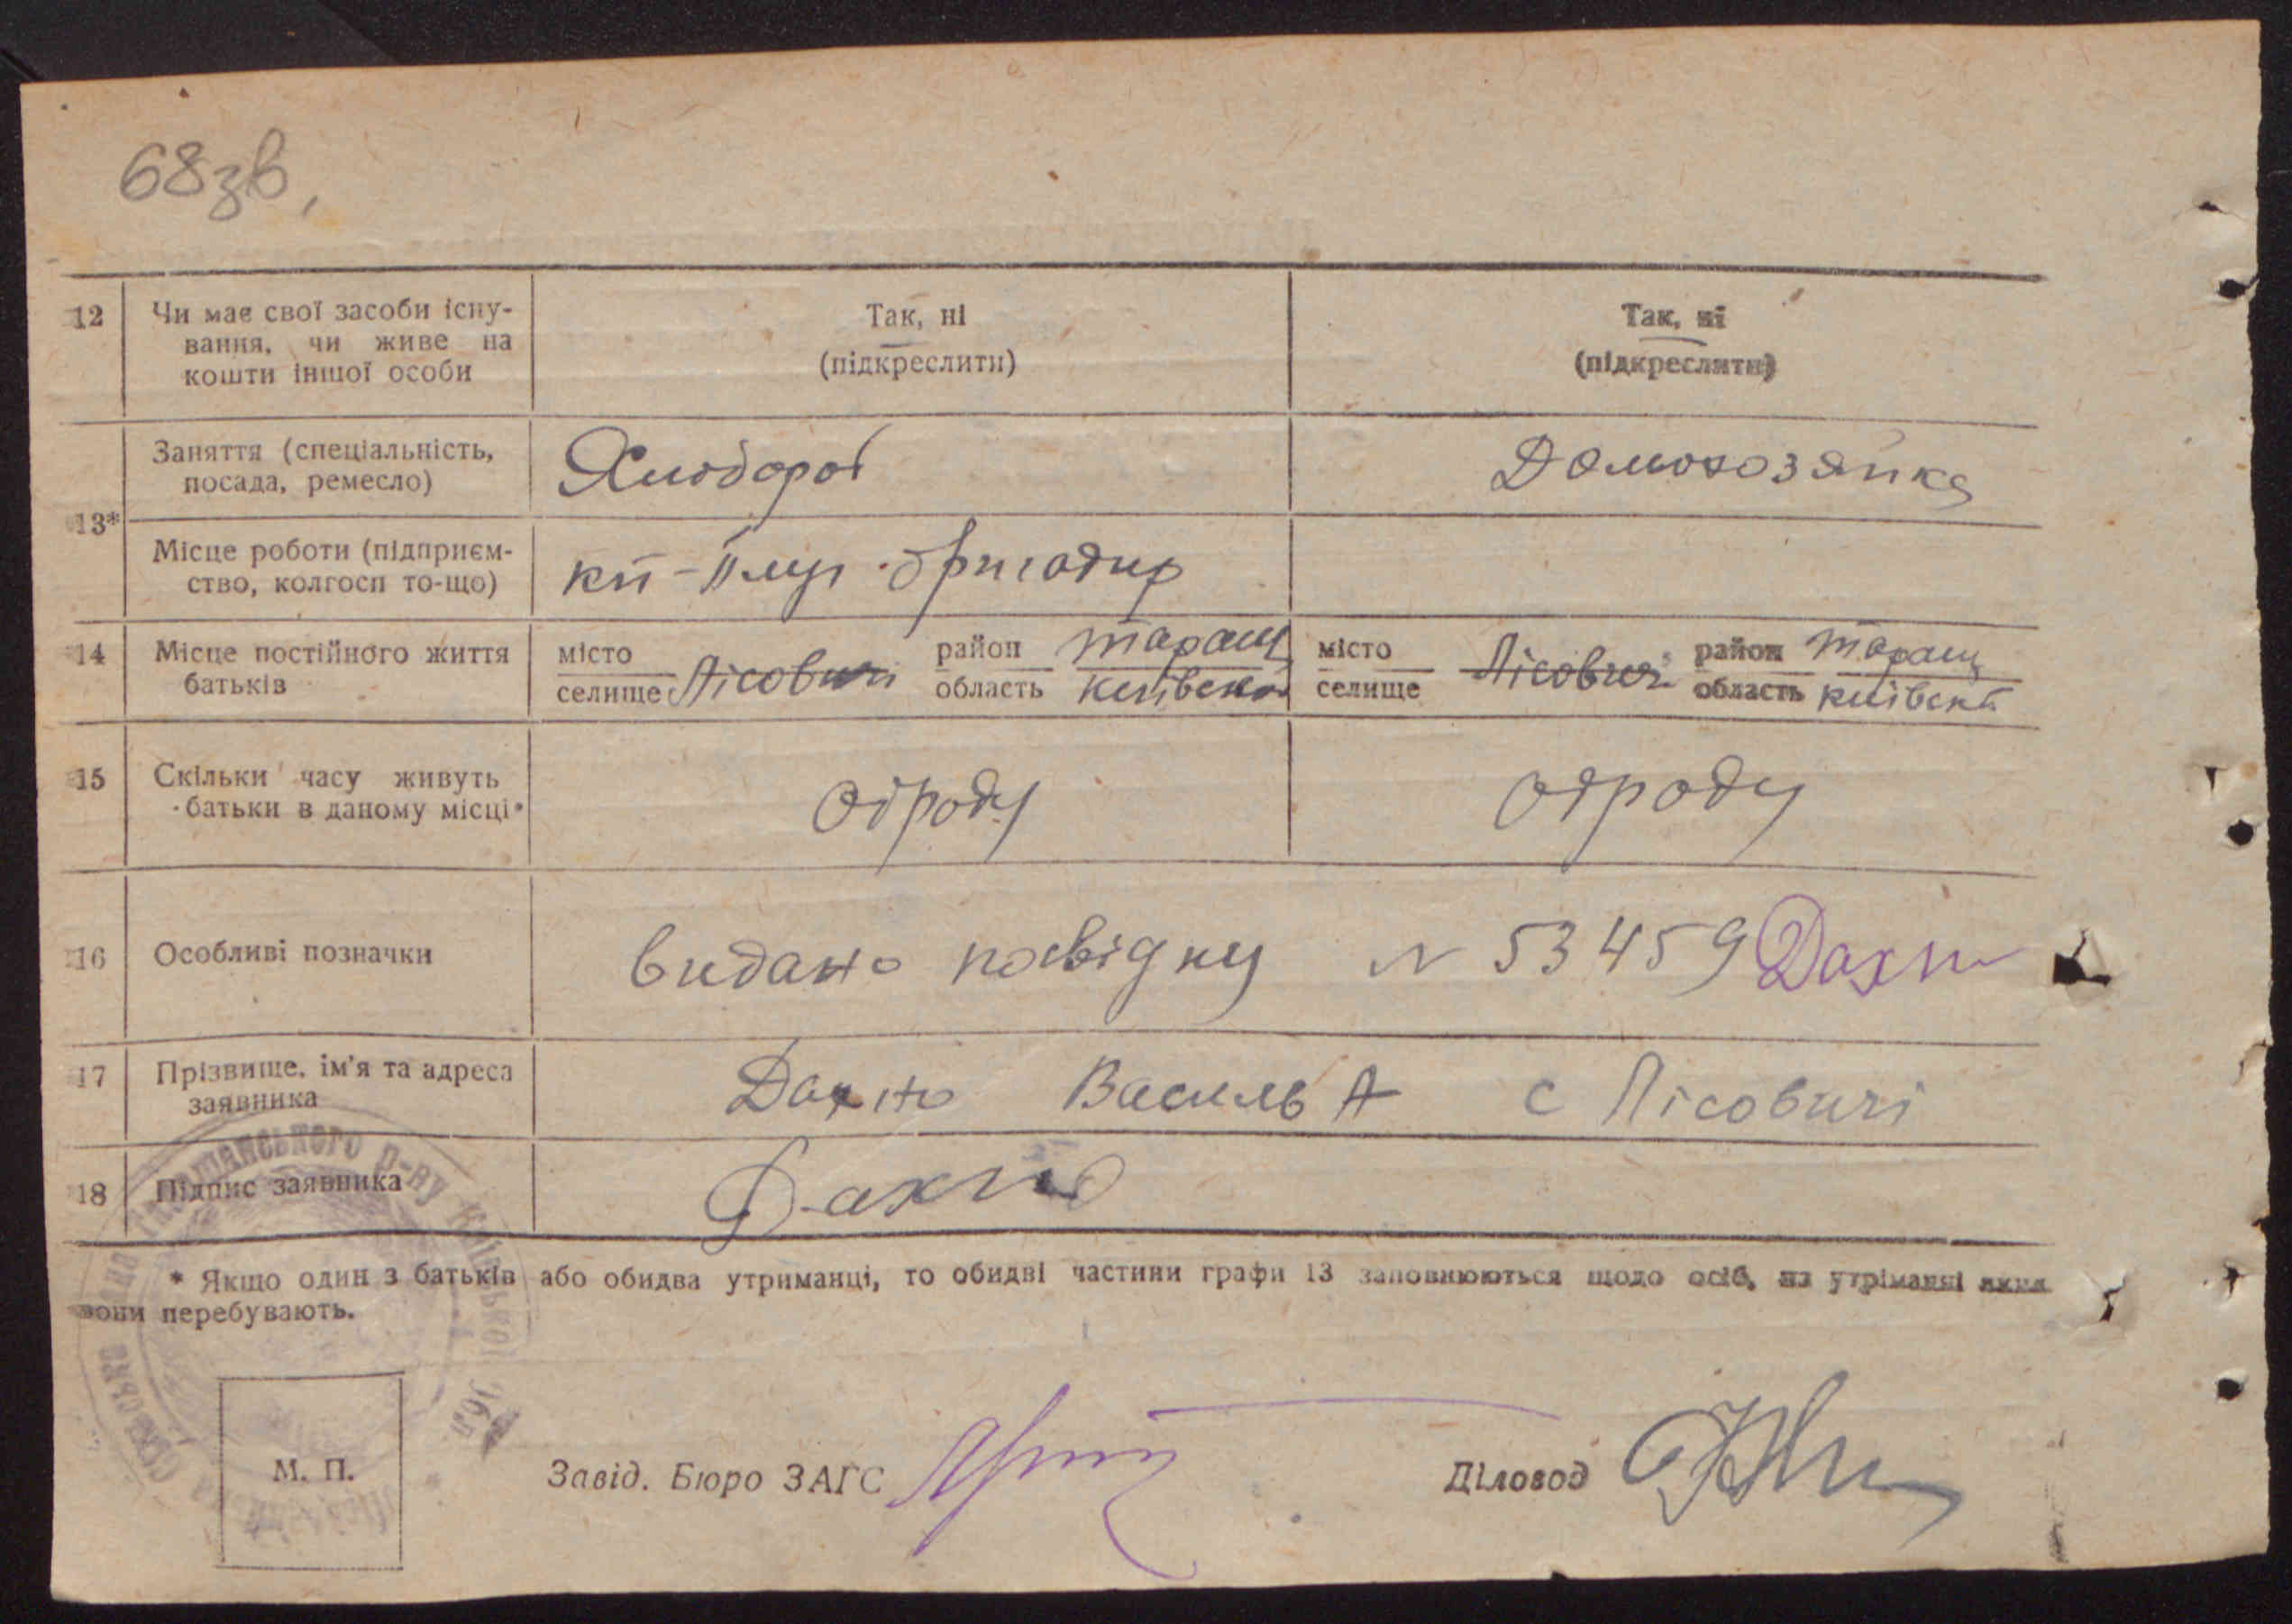 68зв,
12 Чи має свої засоби існу- Так, ні Так, ні
вання, чи живе на (підкреслити) (підкреслити)
кошти іншої особи
Заняття (спеціальність, Хлібороб Домохозяйка
посада, ремесло)
13*
Місце роботи (підприєм- бригадир
ство, колгосп то-що)
14 Місце постійного життя місто район Таращ місто район Таращ
батьків селище Лісовичі область київська селище Лісовичі область київська
15 Скільки часу живуть одроду одроду
батьки в даному місці
16 Особливі позначки видано посвідку N 53459 Дахн
17 Прізвище, ім'я та адреса Дахно Василь А с Лісовичі
заявника
18 Підпис заявника Дахно
* Якщо один з батьків або обидва утриманці, то обидві частини графи 13 заповнюються щодо осіб, на утріманні яких
вони перебувають.
М. П. Завід. Бюро ЗАГС Діловод
Таращанського р-ну Київської обл.